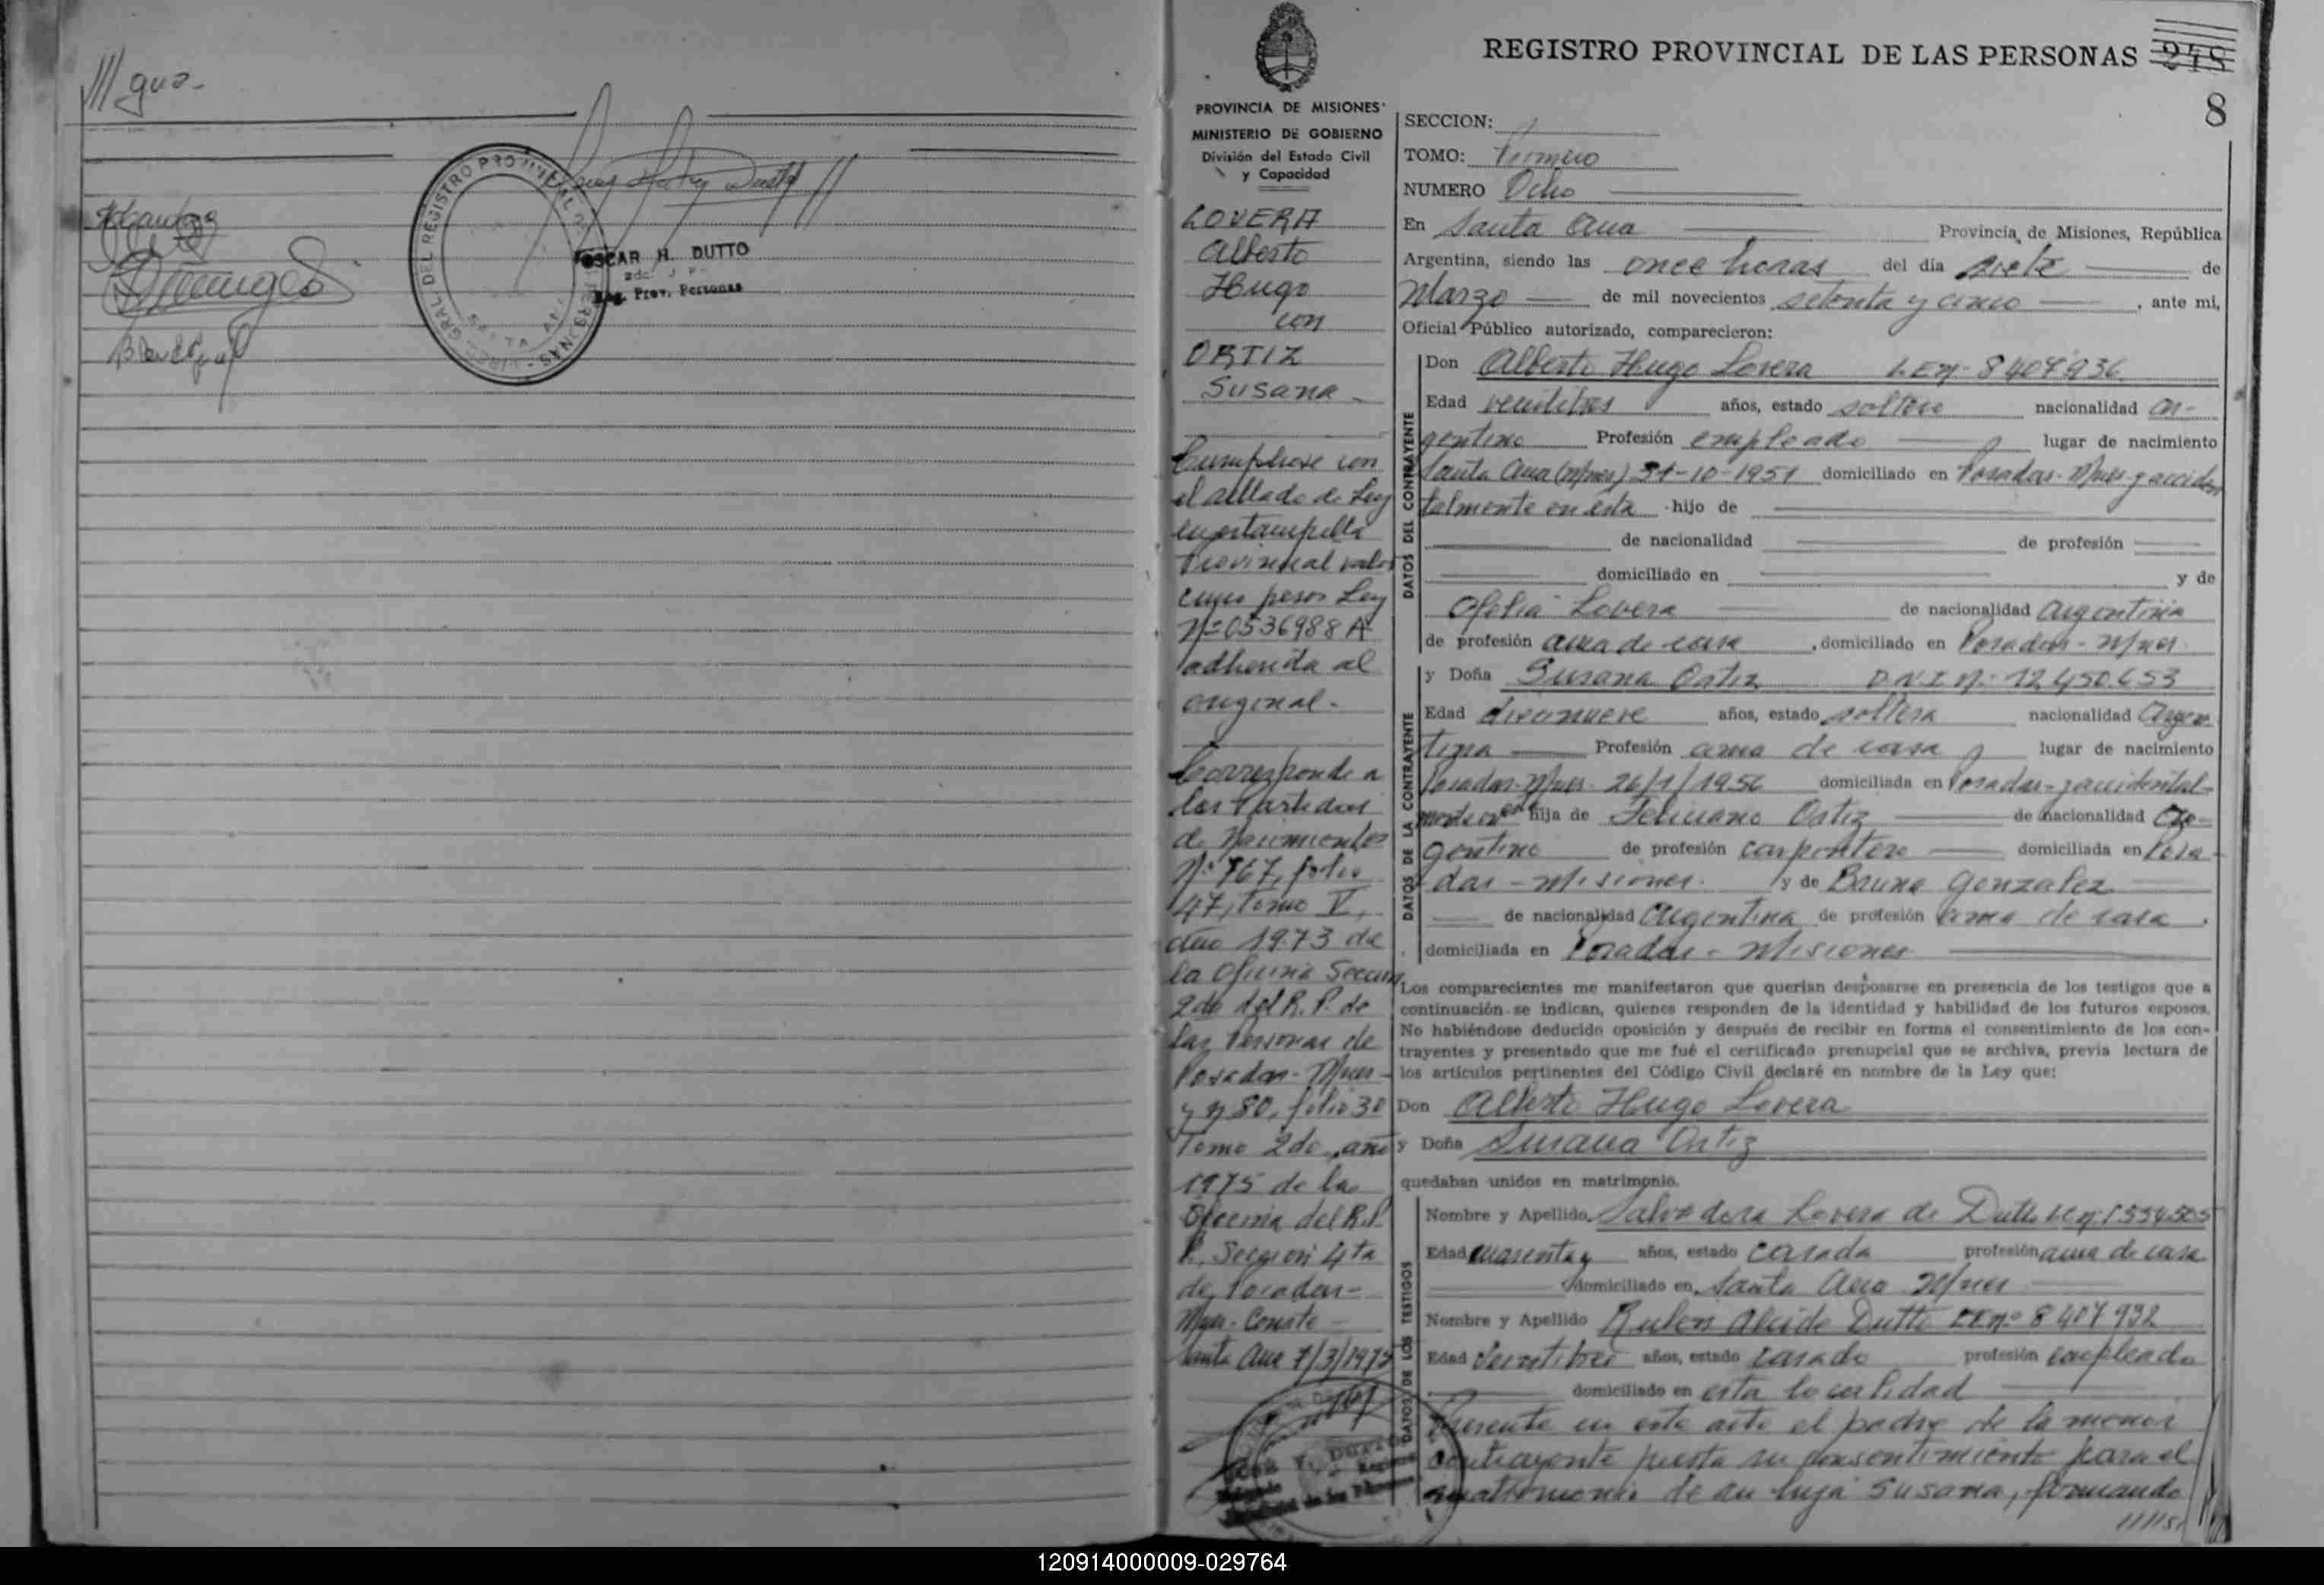 REGISTRO PROVINCIAL DE LAS PERSONAS 248
8
PROVINCIA DE MISIONES
MINISTERIO DE GOBIERNO
División del Estado Civil
y Capacidad
LOVERA
Alberto
Hugo
con
ORTIZ
Susana -
Cumplese con
el sellado de Ley
en estampilla
Provincial valor
pesos Ley
Nº 0536988 A
adherida al
original.-
Corresponde a
las Partidas
de Nacimientos
Nº 767, folio
47, tomo V,
año 1973 de
la Oficina Seccion
2da del R. P. de
las Personas de
Posadas - Mnes -
y nº 80, folio 30
Tomo 2do, año
1975 de la
Oficina del R.P.
P. Sección 4ta
de Posadas-
Mnes - Conste -
Santa Ana 7/3/1975
SECCION:
TOMO: Primero
NUMERO Ocho
En Santa Ana Provincia de Misiones, República
Argentina, siendo las once horas del día siete de
Marzo de mil novecientos setenta y cinco, ante mi,
Oficial Público autorizado, comparecieron:
DATOS DEL CONTRAYENTE
Don Alberto Hugo Lovera L.E.Nº 8407936
Edad veintitres años, estado soltero nacionalidad ar-
gentino Profesión empleado y lugar de nacimiento
Santa Ana (Mnes) 31-10-1951 domiciliado en Posadas - Mnes y acciden
talmente en esta hijo de
de nacionalidad de profesión
domiciliado en y de
Ofelia Lovera de nacionalidad argentina
de profesión ama de casa, domiciliado en Posadas - Mnes.
DATOS DE LA CONTRAYENTE
y Doña Susana Ortiz D.N.I. Nº 12.450.653
Edad diecinueve años, estado soltera nacionalidad Argen
tina Profesión ama de casa y lugar de nacimiento
Posadas - Mnes. 26/1/1956 domiciliada en Posadas - y accidental-
mente en esta hija de Feliciano Ortiz de nacionalidad Ar-
gentino de profesión carpintero domiciliada en Posa-
das - Misiones. y de Bruna Gonzalez
de nacionalidad Argentina de profesión ama de casa.
domiciliada en Posadas - Misiones
Los comparecientes me manifestaron que querían desposarse en presencia de los testigos que a
continuación se indican, quienes responden de la identidad y habilidad de los futuros esposos.
No habiéndose deducido oposición y después de recibir en forma el consentimiento de los con-
trayentes y presentado que me fué el certificado prenupcial que se archiva, previa lectura de
los artículos pertinentes del Código Civil declaré en nombre de la Ley que:
Don Alberto Hugo Lovera
y Doña Susana Ortiz
quedaban unidos en matrimonio.
DATOS DE LOS TESTIGOS
Nombre y Apellido Salvadora Lovera de Dutto
Edad cuarenta y años, estado casada profesión ama de casa
domiciliado en Santa Ana Mnes
Nombre y Apellido Ruben Alcide Dutto L.E.Nº 8407932
Edad veintitres años, estado casado profesión empleado
domiciliado en esta localidad
Presente en este acto el padre de la menor
contrayente presta su consentimiento para el
matrimonio de su hija Susana, firmando
OSCAR H. DUTTO
Reg. Prov. Personas
120914000009-029764